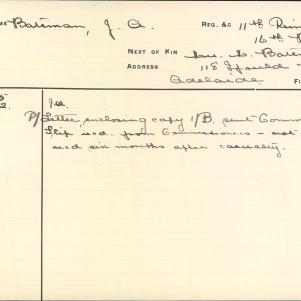 ME Bateman, J. A. REG. &c 11th Rein
16th B
NEXT OF KIN Mrs. Bate
ADDRESS 118 Gould
Adelaide FI
Letter enclosing copy 1/B. sent Comm
Slip recd. from Commissioner - not
recd six months after casualty.